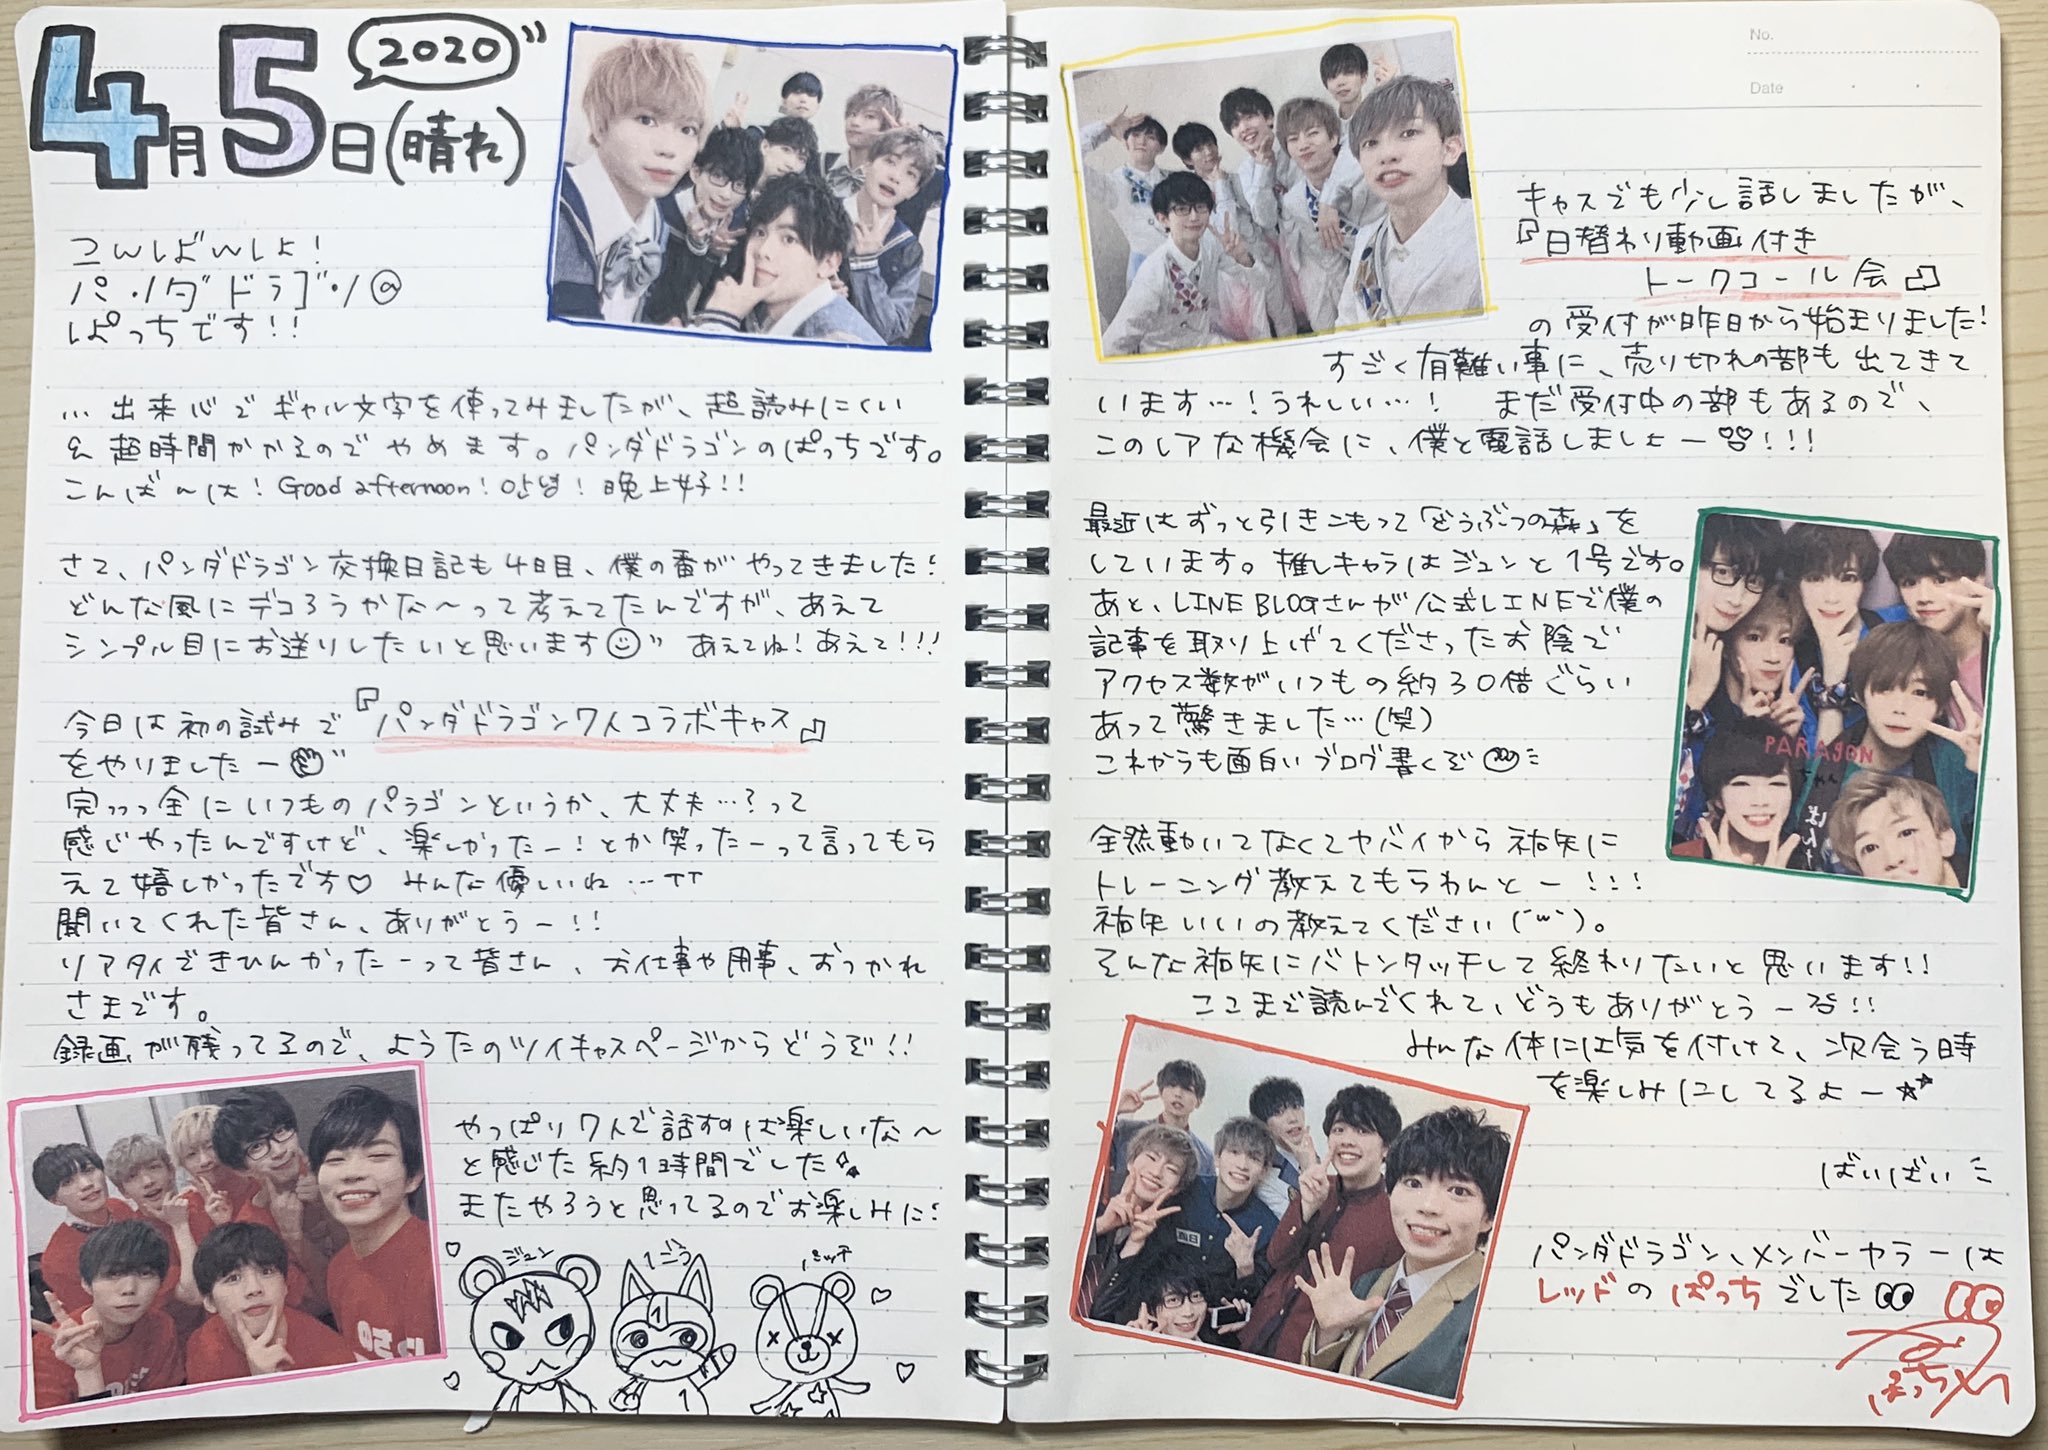 4月5日(晴れ)
2020
こんばんわ!
パンダドラゴン@
ぱっちです!!
…出来心でギャル文字を使ってみましたが、超読みにくい
&超時間かかるのでやめます。パンダドラゴンのぱっちです。
こんばんは!Good afternoon!안녕!晚上好!!
さて、パンダドラゴン交換日記も4日目、僕の番がやってきました!
どんな風にデコろうかな〜って考えてたんですが、あえて
シンプル目にお送りしたいと思います あえてね!あえて!!!
今日は初の試みで『パンダドラゴン7人コラボキャス』
をやりましたー
完っっっ全にいつものパラゴンというか、大丈夫…?って
感じやったんですけど、楽しかったー!とか笑ったーって言ってもら
えて嬉しかったです♡ みんな優しいね…TT
聞いてくれた皆さん、ありがとうー!!
リアタイできひんかったーって皆さん、お仕事や用事、おつかれ
さまです。
録画が残ってるので、ようたのツイキャスページからどうぞ!!
やっぱり7人で話すのは楽しいな〜
と感じた約1時間でした
またやろうと思ってるのでお楽しみに!
ジュン
1ごう
パッチ
1
1
No.
Date
キャスでも少し話しましたが、
『日替わり動画付き
トークコール会』
の受付が昨日から始まりました!
すごく有難い事に、売り切れの部も出てきて
います…!うれしい…! まだ受付中の部もあるので、
このレアな機会に、僕と電話しましょー!!!
最近はずっと引きこもって「どうぶつの森」を
しています。推しキャラはジュンと1号です。
あと、LINE BLOGさんが公式LINEで僕の
記事を取り上げてくださったお陰で
アクセス数がいつもの約30倍ぐらい
あって驚きました…(笑)
これからも面白いブログ書くぞ
PARAGON
ちゃん
ぱんちゃ
全然動いてなくてヤバイから祐矢に
トレーニング教えてもらわんとー!!!
祐矢いいの教えてください(´ω`)。
そんな祐矢にバトンタッチして終わりたいと思います!!
ここまで読んでくれて、どうもありがとうー!!
みんな体には気を付けて、次会う時
を楽しみにしてるよー☆
ばいばい
パンダドラゴン、メンバーカラーは
レッドのぱっちでした
ぱっち